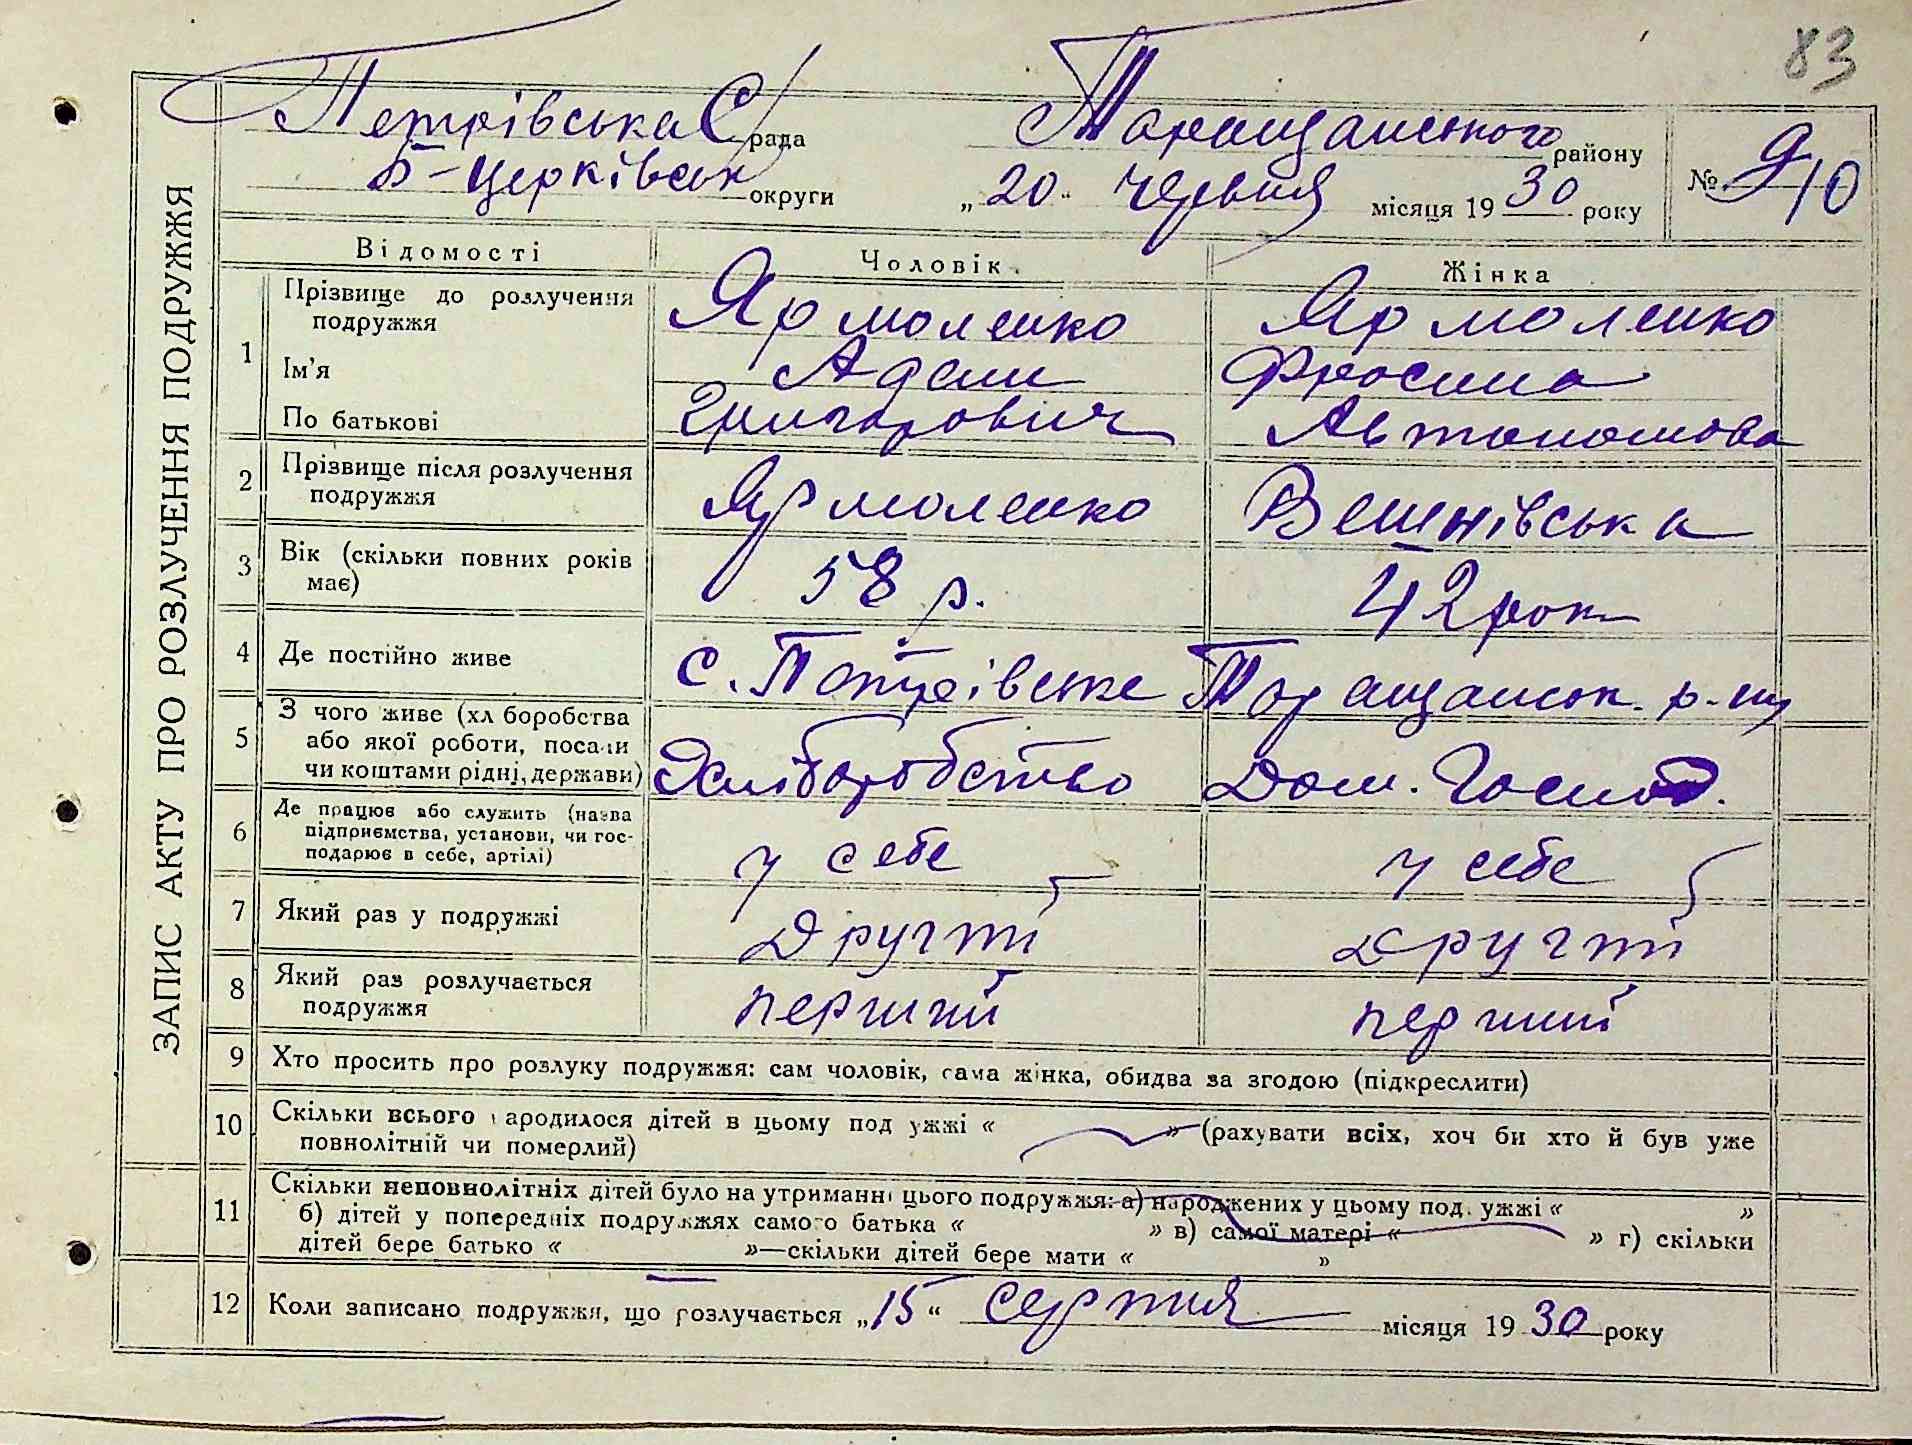 83
ЗАПИС АКТУ ПРО РОЗЛУЧЕННЯ ПОДРУЖЖЯ
Петрівська С/рада Таращанського району
Б-Церківськ округи „20“ червня місяця 1930 року № 9/10
Відомості Чоловік Жінка
1 Прізвище до розлучення подружжя Ярмоленко Ярмоленко
Ім'я Адам Фросина
По батькові Григорович Автономова
2 Прізвище після розлучення подружжя Ярмоленко Вешнівська
3 Вік (скільки повних років має) 58 р. 42 рок
4 Де постійно живе с. Петрівське Таращанськ. р-ну
5 З чого живе (хл боробства або якої роботи, посади чи коштами рідні, держави) Хліборобство Дом. Госпо.
6 Де працює або служить (назва підприємства, установи, чи господарює в себе, артілі) у себе у себе
7 Який раз у подружжі Другий Другий
8 Який раз розлучається подружжя перший перший
9 Хто просить про розлуку подружжя: сам чоловік, сама жінка, обидва за згодою (підкреслити)
10 Скільки всього народилося дітей в цьому под ужжі « » (рахувати всіх, хоч би хто й був уже
повнолітній чи померлий)
11 Скільки неповнолітніх дітей було на утриманні цього подружжя: а) народжених у цьому под. ужжі « »
б) дітей у попередніх подружжях самого батька « » в) самої матері « » г) скільки
дітей бере батько « »—скільки дітей бере мати « »
12 Коли записано подружжя, що розлучається „15“ серпня місяця 1930 року